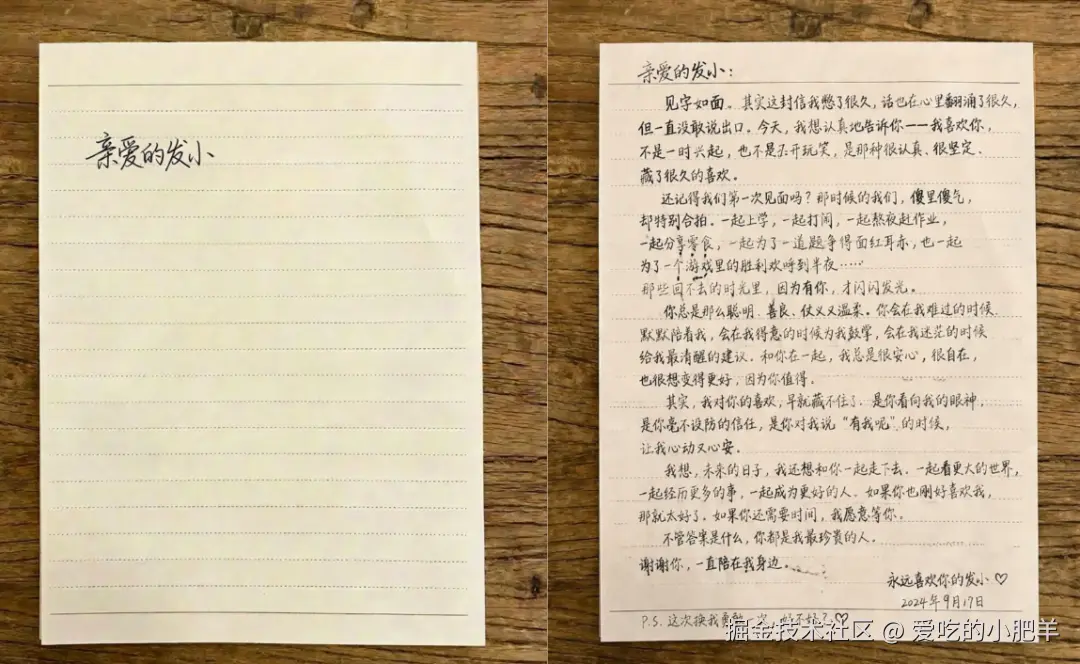 亲爱的发小
亲爱的发小：
见字如面。其实这封信我憋了很久，话也在心里翻涌了很久，
但一直没敢说出口。今天，我想认真地告诉你——我喜欢你，
不是一时兴起，也不是开玩笑，是那种很认真、很坚定、
藏了很久的喜欢。
还记得我们第一次见面吗？那时候的我们，傻里傻气，
却特别合拍。一起上学，一起打闹，一起熬夜赶作业，
一起分享零食，一起为了一道题争得面红耳赤，也一起
为了一个游戏里的胜利欢呼到半夜……
那些回不去的时光里，因为有你，才闪闪发光。
你总是那么聪明、善良、仗义又温柔。你会在我难过的时候
默默陪着我，会在我得意的时候为我鼓掌，会在我迷茫的时候
给我最清醒的建议。和你在一起，我总是很安心，很自在，
也很想变得更好，因为你值得。
其实，我对你的喜欢，早就藏不住了。是你看向我的眼神，
是你毫不设防的信任，是你对我说“有我呢”的时候，
让我心动又心安。
我想，未来的日子，我还想和你一起走下去、一起看更大的世界，
一起经历更多的事，一起成为更好的人。如果你也刚好喜欢我，
那就太好了。如果你还需要时间，我愿意等你。
不管答案是什么，你都是我最珍贵的人。
谢谢你，一直陪在我身边。
永远喜欢你的发小♡
2024年9月17日
P.S. 这次换我勇敢一次，好不好？♡
掘金技术社区 @ 爱吃的小肥羊